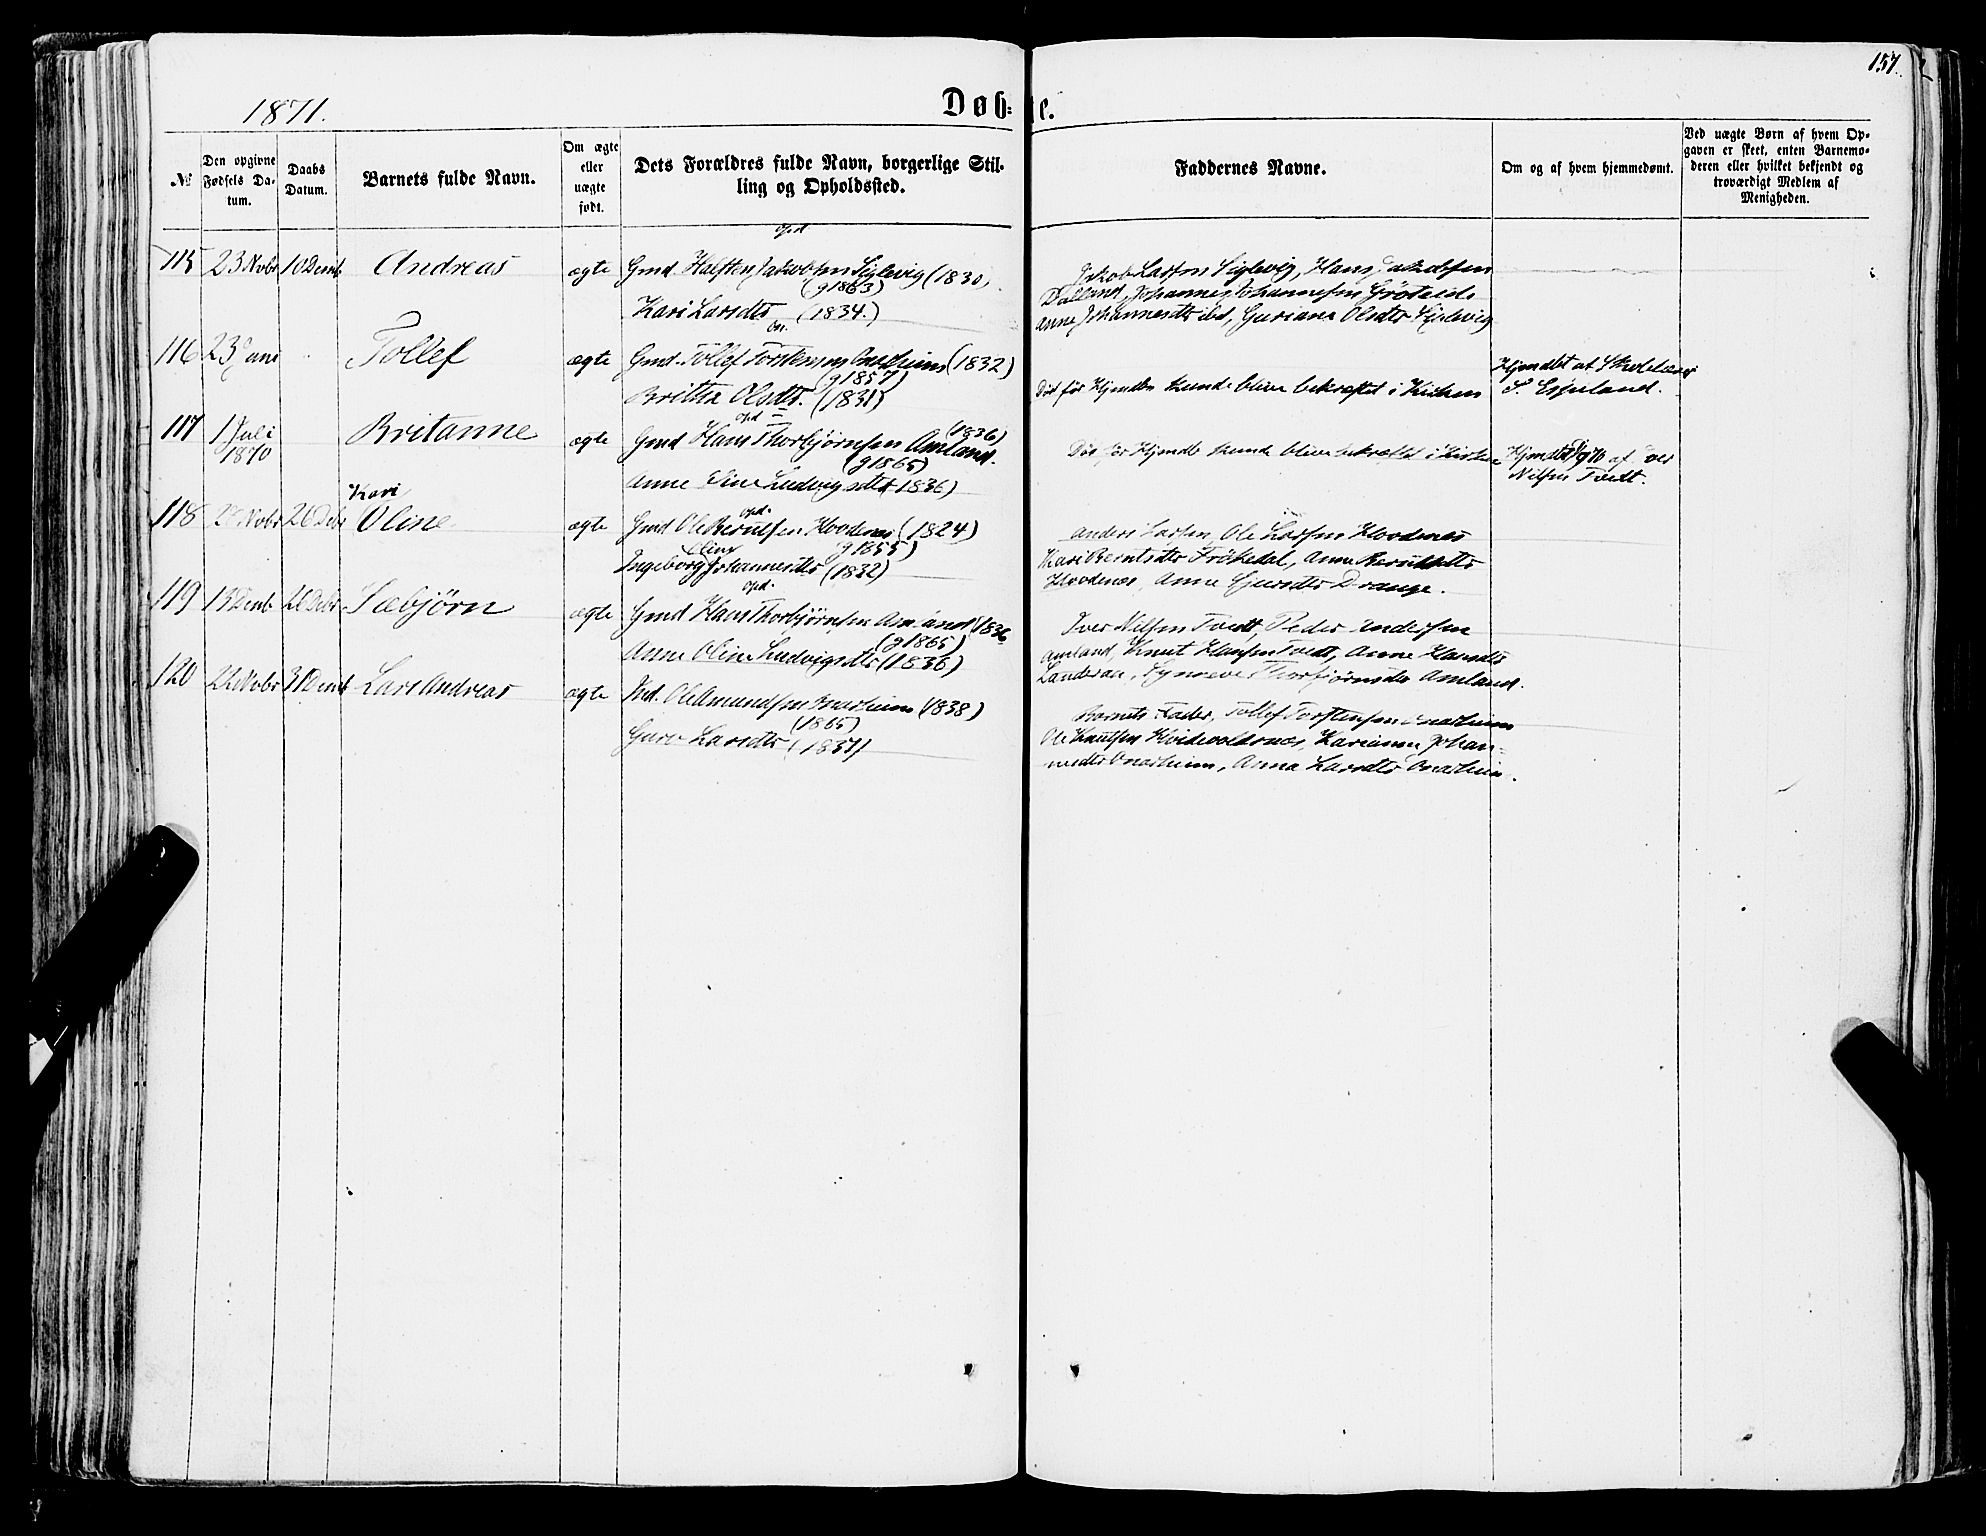 157.
1871.
Døb-
te.
№
Den opgivne Fødsels Datum.
Daabs Datum.
Barnets fulde Navn.
Om ægte eller uægte født.
Dets Forældres fulde Navn, borgerlige Stilling og Opholdssted.
Faddernes Navne.
Om og af hvem hjemmedømt.
Ved uægte Børn af hvem Opgaven er skeet, enten Barnemoderen eller hvilket bekjendt og troværdigt Medlem af Menigheden.
115 23 Novbr 10 Decmb Andreas ægte Gmd. Halsten Jakobsen Siglevig (1830)
(g 1863)
Kari Larsdtr (1834.)
Jakob Larsen Siglevig, Hans Jakobsen
Dalland, Johannes Johannesen
Anne Johannesdtr ibd, Guriane Olsdtr Siglevig
116 23 Juni Tollef ægte Gmd. Tollef Torstensen Onarheim (1832)
(g 1857)
Britha Olsdtr. (1831)
Død før Hjmdbn kunde blive bekræftet i Kirken
Hjemdbt af Skolelærer
S. Espeland.
117 1 Juli 1870 Britanne ægte Gmd Hans Thorbjørnsen Amland. (1836)
(g 1865)
Anne Oline Ludvigsdtr (1836)
Død før Hjmdb kunde blive bekræftet i Kirken
Hjemdbt af Iver
Nilsen Tvedt.
118 Novbr 26 Debr Kari Oline ægte Gmd Ole Berntsen Hovdenes (1824)
g 1855)
Ingeborg Oline Johannesdtr (1832)
Anders Larsen, Ole Larsen Hovdenes
Kari Berntsdtr Frökedal, Anne Berntsdtr
Hovdenes, Anne Sjursdtr Drange.
119 13 Decmb 26 Debr Sæbjørn ægte Gmd Hans Thorbjørnsen Amland (1836
(g 1865)
Anne Oline Ludvigsdtr (1836)
Iver Nilsen Tvedt, Peder Andersen
Amland, Knut Hansen Tvedt, Anne Hansdtr
Landeraa, Synneve Thorbjørnsdtr Amland.
120 22 Novbr 31 Decmb Lars Andreas ægte Ind. Ole Amundsen Onarheim (1838)
(1865)
Guro Larsdtr (1837)
Barnets Fader, Tollef Torstensen Onarheim
Ole Knutsen Hvidevoldsnes, Karianne Johan-
nesdtr Onarheim, Anna Larsdtr Onarheim.